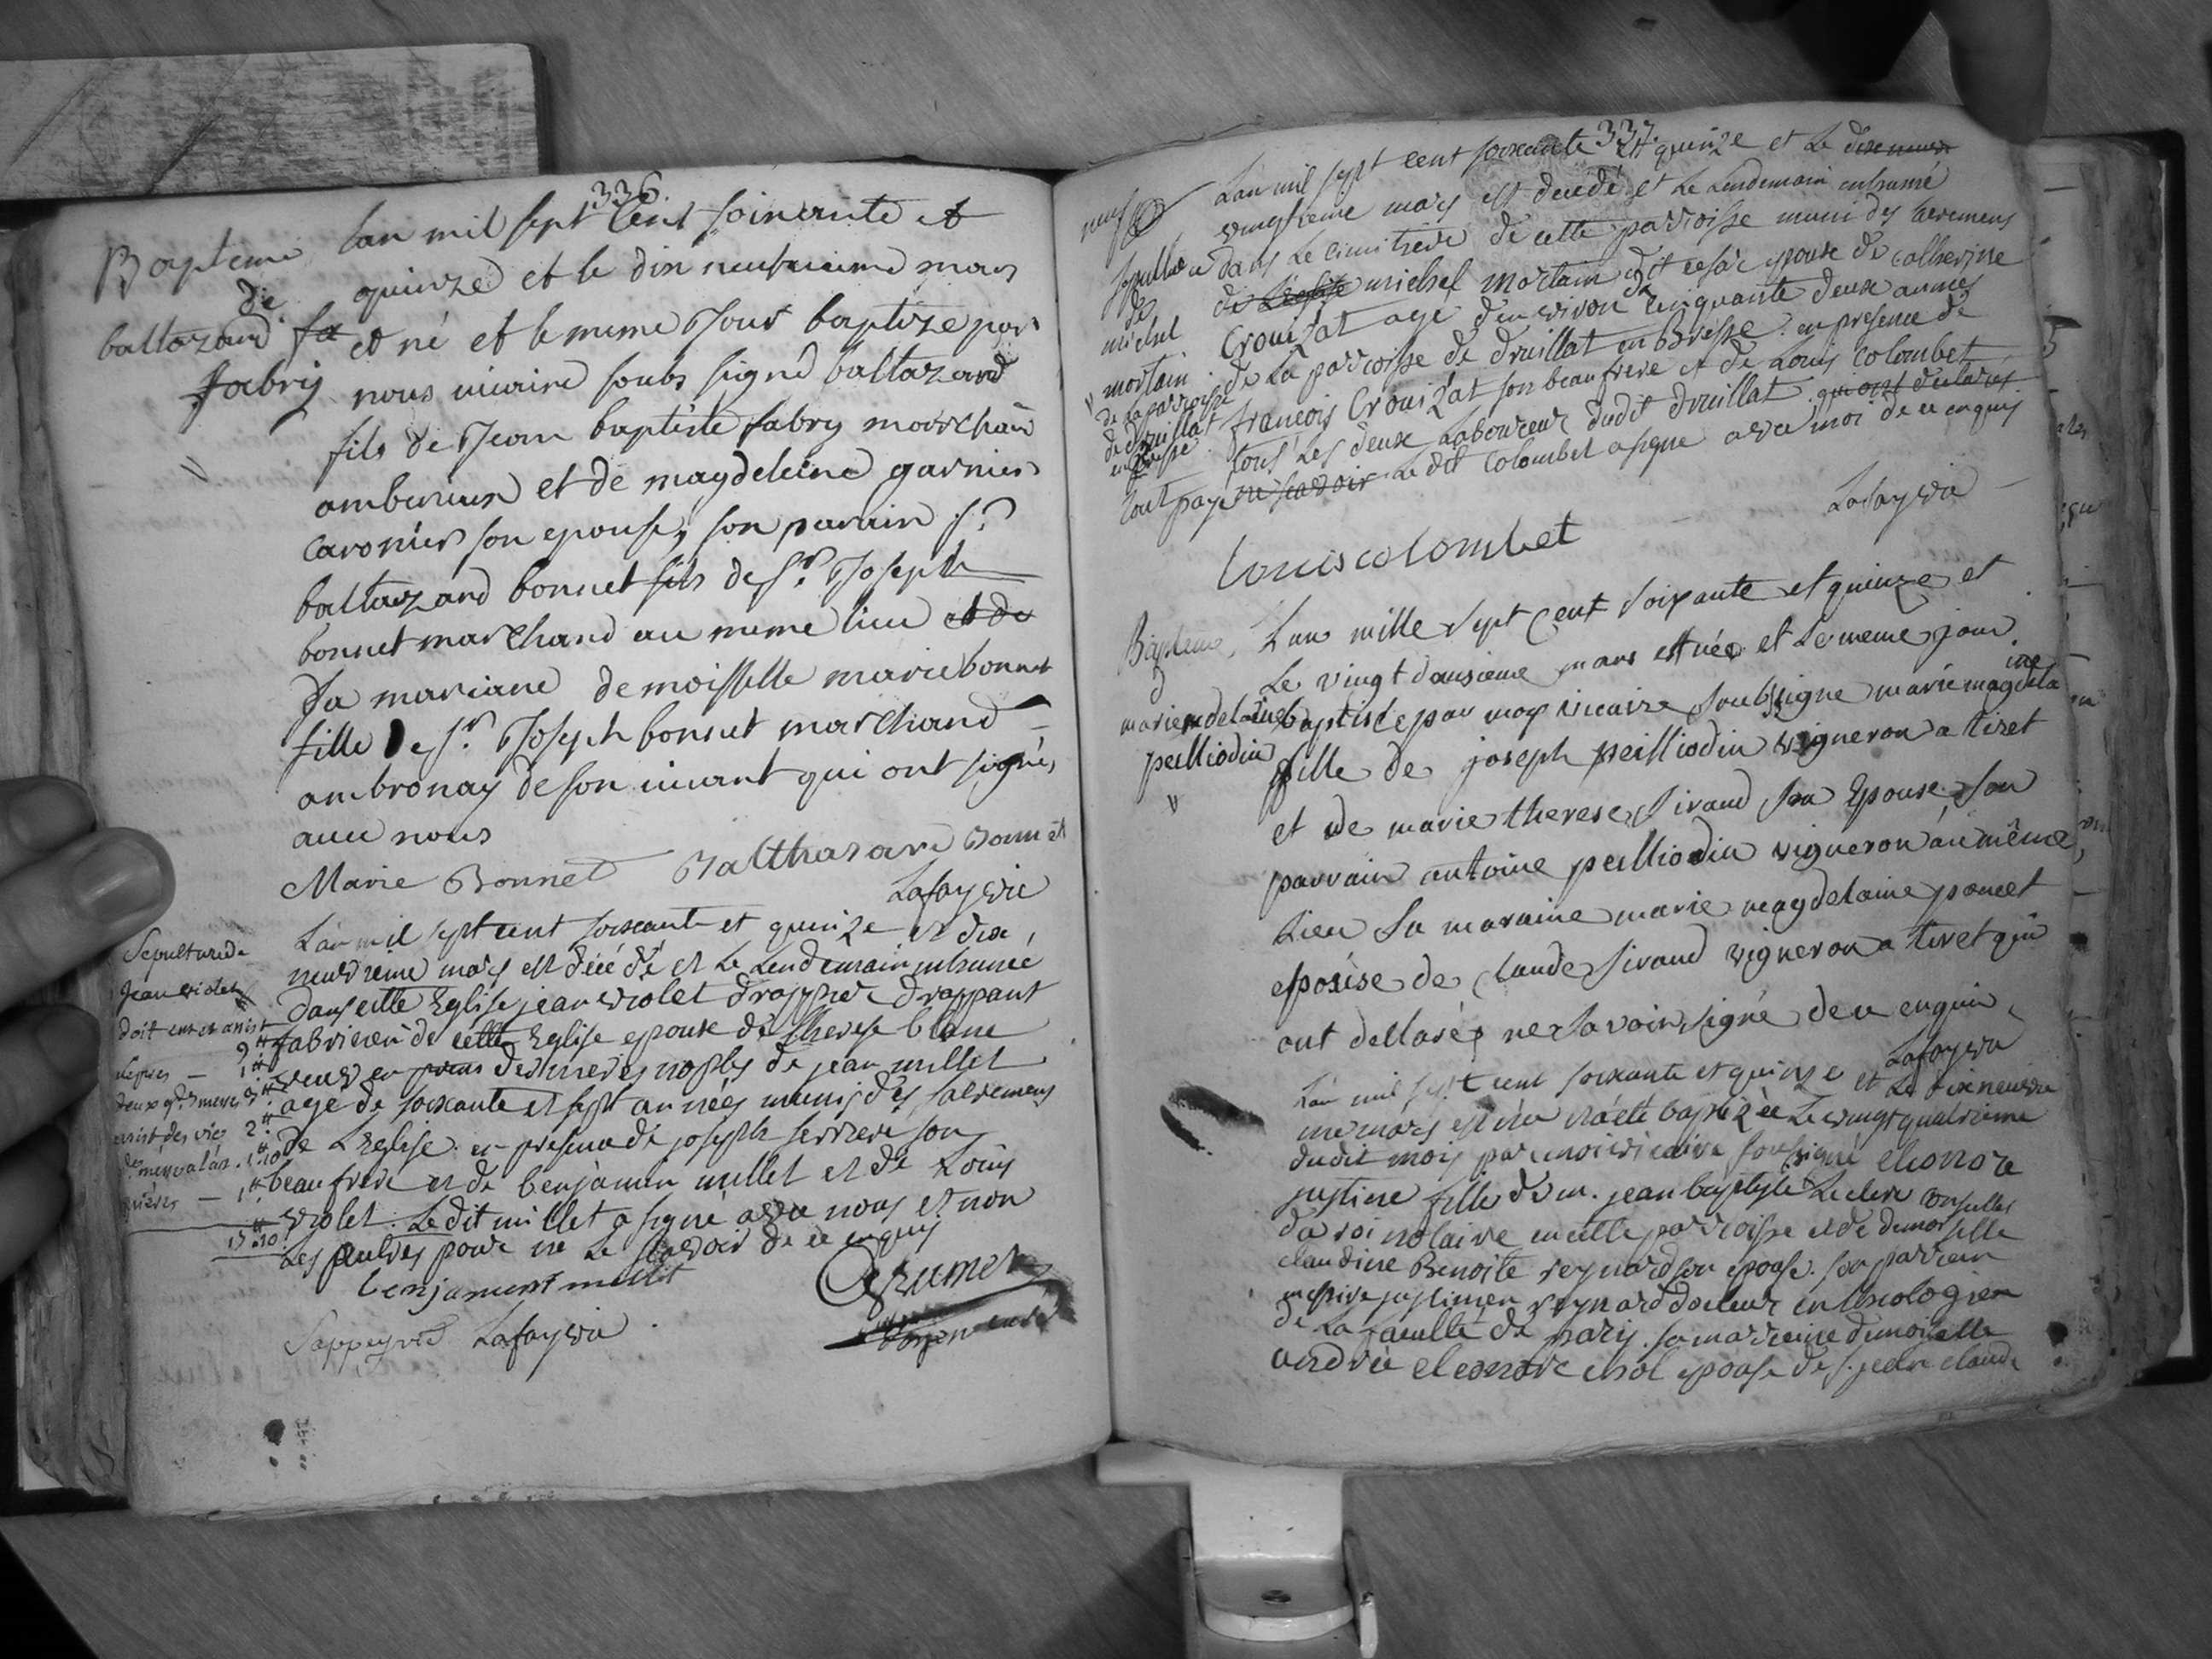 336.
Bapteme
de
baltazard
fabry
lan mil sept cent soixante et
quinze et le dix neuvieme mars
et né et le meme Jour baptize par
nous vicaire soubs signé baltazard
fils de Jean baptiste fabry marchand
amberieux et de magdeleine garnier
son epouse, son parain Sr
baltazard bonnet fils de Sr Joseph
bonnet marchand au meme lieu et de
Sa mariane demoisselle marie bonnet
fille de Sr Joseph bonnet marchand
ambronay de son vivant qui ont signés
avec nous
Marie Bonnet Balthazard Bonnet
Lafayvie
Sepulture de
Jean violet
L'an mil sept cent soixante et quinze et dix
neuvieme mars est décédé et Le Lendemain inhumé
dans cette Eglise jean violet drappier drappant
fabricien de cette Eglise epoux de therese blanc
veuf en de jean millet
age de soixante et sept années munis des sacremens
de L'eglise en presence de joseph serriere son
beaufrere et de benjamin millet et de Louis
violet. Le dit millet a signé avec nous et non
Les autres pour ne Le scavoir de ce enquis
15 # 10
benjamin millet
Sappeyvie Lafayvie
337.
sepulture
de
michel
mortain
de la parroisse
de druillat
en bresse
tout payé
Lan mil sept cent soixante et quinze et Le dixneuf
vingtieme mars est decedé et Le Lendemain inhumé
dans Le cimitiere de cette parroisse muni des sacremens
de L'eglise michel mortain dit cesar epoux de catherine
Crouizat agé d'environ cinquante deux années
de La parroisse de druillat en Bresse. en presence de
francois Crouizat son beaufrere et de Louis Colombet
tous Les deux Laboureur dudit druillat qui ont declarés
ne scavoir Le dit Colombet a signé avec moi de ce enquis
Lafayvie
Louis colombet
Bapteme
d
marie madelaine
peilliodin
L'an mille sept cent soixante et quinze et
Le vingt dousieme mars est née et Le meme jour
baptisée par moy vicaire soubsigne marie magdelaine
fille de joseph peilliodin vigneron a tiret
et de marie therese sirand sa Epouse son
parrain antoine peilliodin vigneron au même
Lieu Sa maraine marie magdelaine poncet
epouse de claude sirand vigneron a tiret qui
ont dellarés ne savoir signé de ce enquis
Lafayvie
L'an mil sept cent soixante et quinze et Le dixneuvie
me mars est née et a été baptizée Le vingt quatrieme
dudit mois par moi vicaire soussigné eleonore
justine fille de m. jean baptiste Leclerc conseiller
du roi notaire en cette parroisse et de demoiselle
claudine Benoite reynard son epouse. son parrain
messire justinien reynard docteur en theologie
de La faculté de paris. sa marreine demoiselle
andrée eleonore chol epouse de s. jean claude